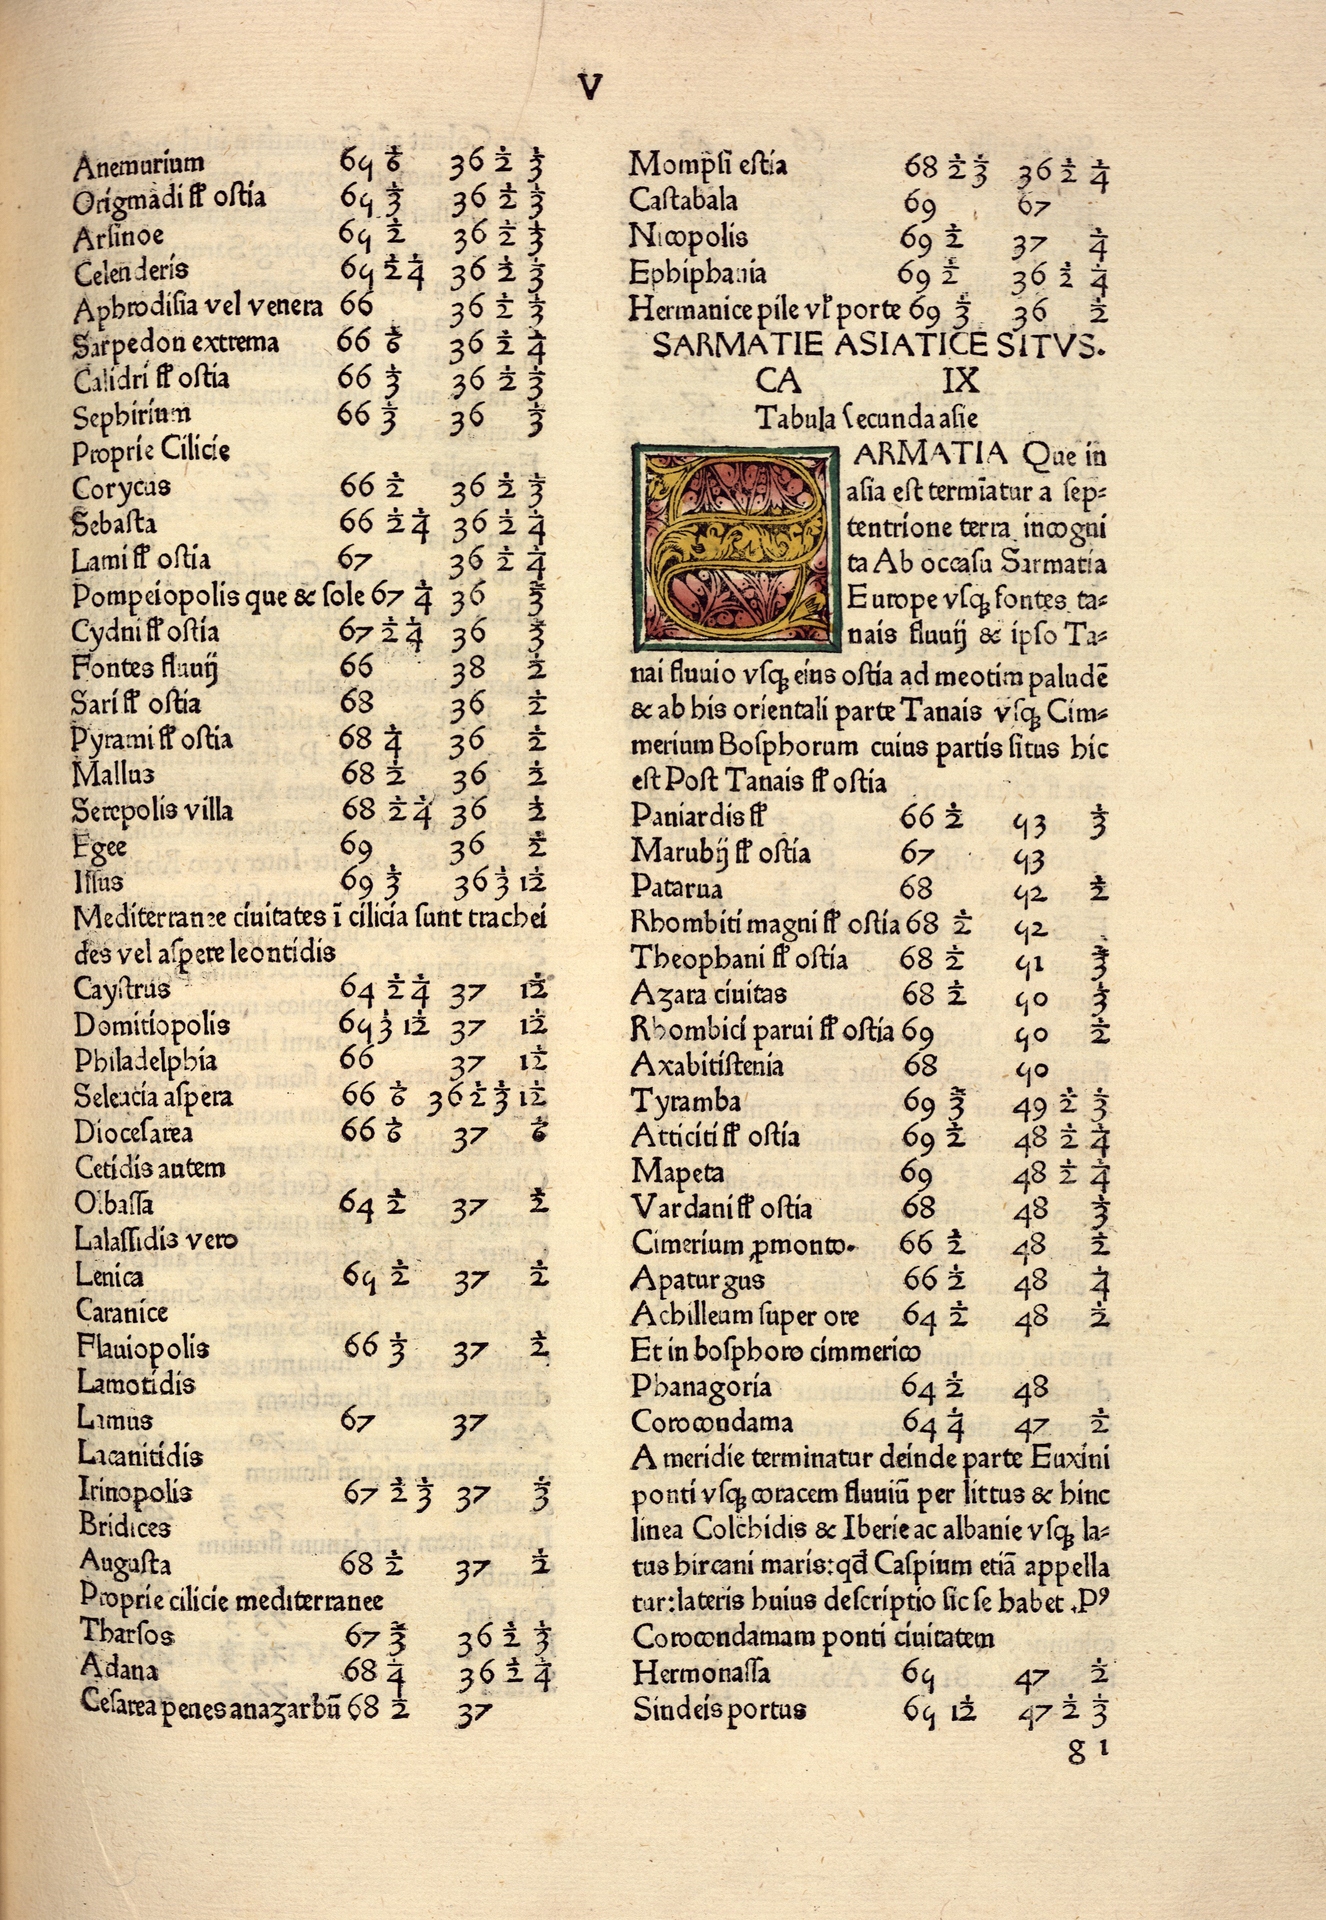 V
Anemurium 65 ⅙ 36 ½ ⅓
Origmãdi fl' oſtia 65 ⅓ 36 ½ ⅓
Arſinoe 65 ½ 36 ½ ⅓
Celenderis 65 ½ ¼ 36 ½ ⅓
Aphrodiſia vel venera 66 36 ½ ⅓
Sarpedon extrema 66 ⅙ 36 ½ ¼
Calidri fl' oſtia 66 ⅓ 36 ½ ⅓
Sephirium 66 ⅓ 36 ⅓
Proprie Cilicie
Corycus 66 ½ 36 ½ ⅓
Sebaſta 66 ½ ¼ 36 ½ ¼
Lami fl' oſtia 67 36 ½ ¼
Pompeiopolis que & ſole 67 ¼ 36 ⅔
Cydni fl' oſtia 67 ½ ¼ 36 ⅔
Fontes fluuij 66 38 ½
Sari fl' oſtia 68 36 ½
Pyrami fl' oſtia 68 ¼ 36 ½
Mallus 68 ½ 36 ½
Serepolis villa 68 ½ ¼ 36 ½
Egee 69 36 ½
Iſſus 69 ⅓ 36 ⅓ 1/12
Mediterranee ciuitates ĩ cilicia ſunt trachei
des vel aſpere leontidis
Cayſtrus 64 ½ ¼ 37 1/12
Domitiopolis 65 ⅓ 1/12 37 1/12
Philadelphia 66 37 1/12
Seleucia aſpera 66 ⅙ 36 ½ ⅓ 1/12
Dioceſarea 66 ⅙ 37 ⅙
Cetidis autem
Olbaſſa 64 ½ 37 ½
Lalaſſidis vero
Lenica 65 ½ 37 ½
Caranice
Flauiopolis 66 ⅓ 37 ½
Lamotidis
Lamus 67 37
Lacanitidis
Irinopolis 67 ½ ⅓ 37 ⅓
Bridices
Auguſta 68 ½ 37 ½
Proprie cilicie mediterranee
Tharſos 67 ⅔ 36 ½ ⅓
Adana 68 ¼ 36 ½ ¼
Ceſarea penes anazarbũ 68 ½ 37
Mompſi eſtia 68 ½ ⅓ 36 ½ ¼
Caſtabala 69 67
Nicopolis 69 ½ 37 ¼
Ephiphania 69 ½ 36 ½ ¼
Hermanice pile vl' porte 69 ⅓ 36 ½
SARMATIE ASIATICE SITVS.
CA IX
Tabula ſecunda aſie
SARMATIA Que in
aſia eſt termĩatur a ſep=
tentrione terra incogni
ta Ab occaſu Sarmatia
Europe vſqꝫ fontes ta=
nais fluuij & ipſo Ta=
nai fluuio vſqꝫ eius oſtia ad meotim paludẽ
& ab his orientali parte Tanais vſqꝫ Cim=
merium Boſphorum cuius partis ſitus hic
eſt Poſt Tanais fl' oſtia
Paniardis fl' 66 ½ 53 ⅓
Marubij fl' oſtia 67 53
Patarua 68 52 ½
Rhombiti magni fl' oſtia 68 ½ 52
Theophani fl' oſtia 68 ½ 51 ⅔
Azara ciuitas 68 ½ 50 ⅓
Rhombici parui fl' oſtia 69 50 ½
Axabitiſtenia 68 50
Tyramba 69 ⅔ 49 ½ ⅓
Atticiti fl' oſtia 69 ½ 48 ½ ¼
Mapeta 69 48 ½ ¼
Vardani fl' oſtia 68 48 ⅓
Cimerium ꝓmonto. 66 ½ 48 ½
Apaturgus 66 ½ 48 ¼
Achilleum ſuper ore 64 ½ 48 ½
Et in boſphoro cimmerico
Phanagoria 64 ½ 48
Corocondama 64 ¼ 47 ½
A meridie terminatur deinde parte Euxini
ponti vſqꝫ coracem fluuiũ per littus & hinc
linea Colchidis & Iberie ac albanie vſqꝫ la=
tus hircani maris:qđ Caſpium etiã appella
tur:lateris huius deſcriptio ſic ſe habet .Pꝰ
Corocondamam ponti ciuitatem
Hermonaſſa 65 47 ½
Sindeis portus 65 1/12 47 ½ ⅓
g 1